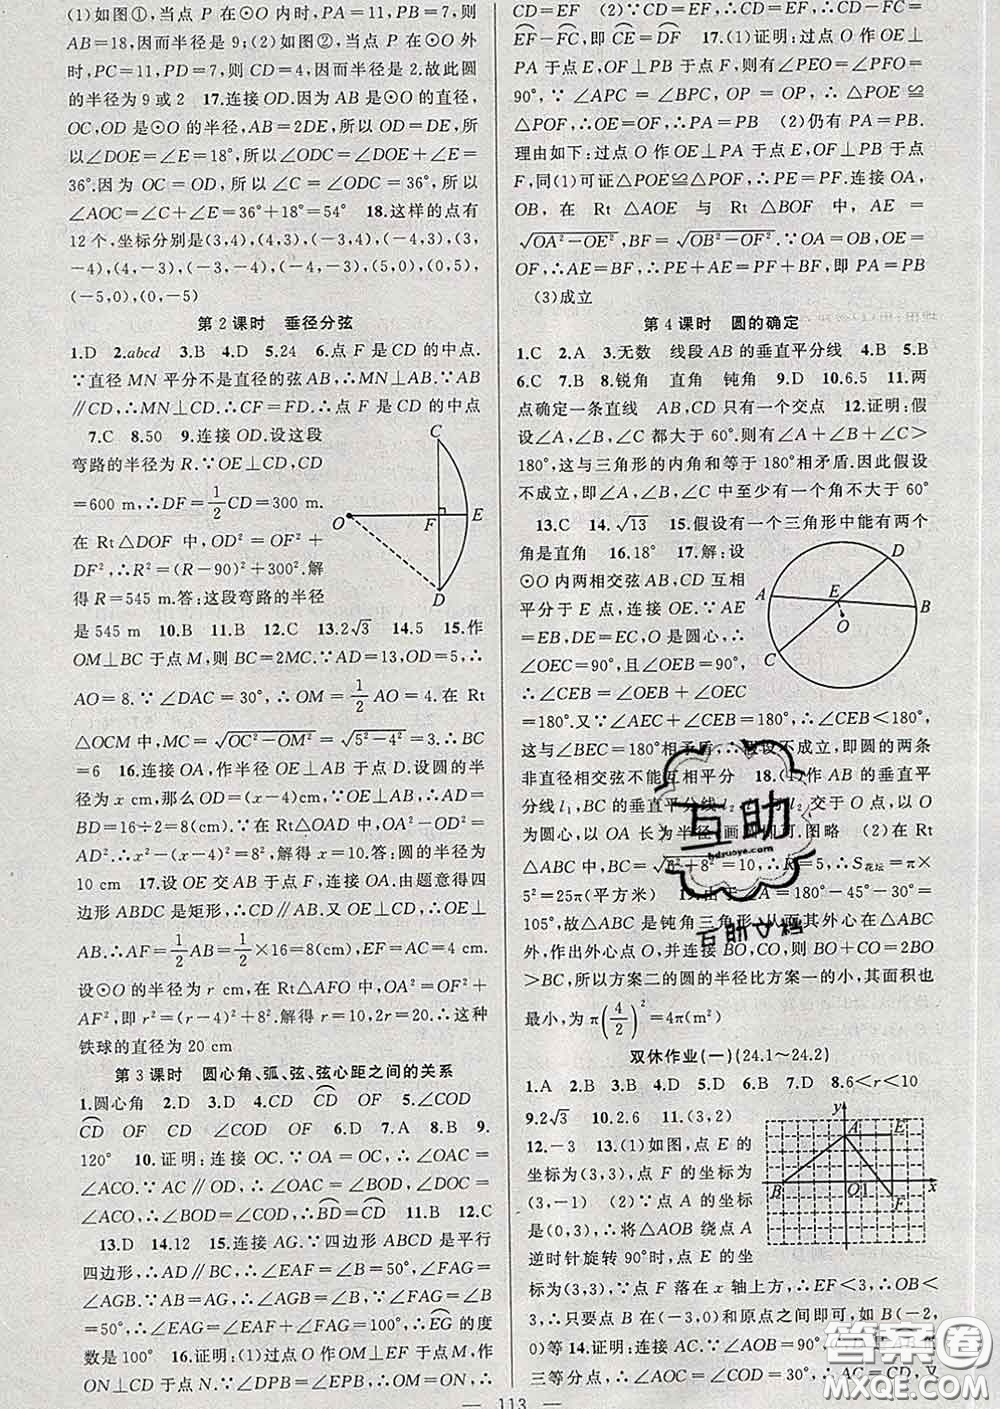 (1)如图①,当点 P 在⊙O 内时,PA=11,PB=7,则
AB=18,因而半径是 9;(2)如图②,当点 P 在⊙O 外
时,PC=11,PD=7,则 CD=4,因而半径是 2.故此圆
的半径为 9或 2 17.连接 OD.因为 AB 是⊙O 的直径,
OC,OD 是⊙O 的半径,AB=2DE,所以 OD=DE,所
以∠DOE=∠E=18°,所以∠ODC=∠DOE+∠E=
36°.因为 OC=OD,所以∠C=∠ODC=36°,所以
∠AOC=∠C+∠E=36°+18°=54° 18.这样的点有
12 个,坐标分别是(3,4),(4,3),(-3,4),(-4,3),(3,
-4),(4,-3),(-3,-4),(-4,-3),(5,0),(0,5),
(-5,0),(0,-5)
第 2 课时 垂径分弦
1.D 2.abcd 3.B 4.D 5.24 6.点 F 是 CD 的中点.
∵直径 MN 平分不是直径的弦 AB,∴MN⊥AB.∵AB
∥CD,∴MN⊥CD.∴CF=FD.∴点 F 是 CD 的中点
7.C 8.50 9.连接 OD.设这段
弯路的半径为 R.∵OE⊥CD,CD
=600 m,∴DF=1/2CD=300 m.
在 Rt△DOF 中,OD²=OF²+
DF²,∴R²=(R-90)²+300².解
得 R=545 m.答:这段弯路的半径
C
O F E
D
是 545 m 10.B 11.B 12.C 13.2√3 14.5 15.作
OM⊥BC 于点 M,则 BC=2MC.∵AD=13,OD=5,∴
AO=8.∵∠DAC=30°,∴OM=1/2AO=4.在 Rt
△OCM 中,MC=√(OC²-OM²)=√(5²-4²)=3.∴BC
=6 16.连接 OA,作半径 OE⊥AB 于点 D.设圆的半
径为 x cm,那么 OD=(x-4)cm.∵OE⊥AB,∴AD=
BD=16÷2=8(cm).在 Rt△OAD 中,OA²-OD²=
AD²,∴x²-(x-4)²=8²,解得 x=10.答:圆的半径为
10 cm 17.设 OE 交 AB 于点 F,连接 OA.由题意得四
边形 ABDC 是矩形,∴CD∥AB.又 OE⊥CD,∴OE⊥
AB.∴AF=1/2AB=1/2×16=8(cm),EF=AC=4 cm.
设⊙O 的半径为 r cm,在 Rt△AFO 中,OA²=OF²+
AF²,即 r²=(r-4)²+8².解得 r=10,2r=20.∴这种
铁球的直径为 20 cm
第 3 课时 圆心角、弧、弦、弦心距之间的关系
1.圆心角 2.D 3.D 4.CD C͡D OF 5.∠COD
C͡D OF CD ∠COD OF 6.D 7.A 8.B 9.
120° 10.证明:连接 OC.∵OA=OC,∴∠OAC=
∠ACO.∵AC∥OD,∴∠OAC=∠BOD,∠DOC=
∠ACO,∴∠BOD=∠COD,∴B͡D=C͡D 11.B 12.C
13.D 14.12 15.连接 AG.∵四边形 ABCD 是平行
四边形,∴AD∥BC,∴∠EAF=∠B=50°,∠FAG=
∠AGB.∵AB=AG,∴∠AGB=∠B=50°,∴∠FAG
=50°,∴∠EAG=∠EAF+∠FAG=100°,∴E͡G 的度
数是 100° 16.证明:(1)过点 O 作 OM⊥EF 于点 M,作
ON⊥CD 于点 N.∵∠DPB=∠EPB,∴OM=ON,∴
CD=EF (2)∵CD=EF,∴C͡D=E͡F,∴C͡D-F͡C=
E͡F-F͡C,即 C͡E=D͡F 17.(1)证明:过点 O 作 OE⊥
PA 于点 E,OF⊥PB 于点 F,则有∠PEO=∠PFO=
90°,∵∠APC=∠BPC,OP=OP,∴△POE≌
△POF,∴OE=OF,∴PA=PB (2)仍有 PA=PB.
理由如下:过点 O 作 OE⊥PA 于点 E,OF⊥PB 于点
F,同(1)可证△POE≌△POF,∴PE=PF.连接 OA,
OB,在 Rt△AOE 与 Rt△BOF 中,AE=
√(OA²-OE²),BF=√(OB²-OF²).∵OA=OB,OE=
OF,∴AE=BF,∴PE+AE=PF+BF,即 PA=PB
(3)成立
第 4 课时 圆的确定
1.C 2.A 3.无数 线段 AB 的垂直平分线 4.B 5.B
6.C 7.B 8.锐角 直角 钝角 9.D 10.6.5 11.两
点确定一条直线 AB,CD 只有一个交点 12.证明:假
设∠A,∠B,∠C 都大于 60°.则有∠A+∠B+∠C>
180°,这与三角形的内角和等于 180°相矛盾.因此假设
不成立,即∠A,∠B,∠C 中至少有一个角不大于 60°
13.C 14.√13 15.假设有一个三角形中能有两个
角是直角 16.18° 17.解:设
⊙O 内两相交弦 AB,CD 互相
平分于 E 点,连接 OE.∵AE
=EB,DE=EC,O 是圆心,∴
∠OEC=90°,且∠OEB=90°,
∴∠CEB=∠OEB+∠OEC
A D E B O C
=180°.又∵∠AEC+∠CEB=180°,∴∠CEB<180°,
这与∠BEC=180°相矛盾,∴假设不成立,即圆的两条
非直径相交弦不能互相平分 18.(1)作 AB 的垂直平
分线 l₁,BC 的垂直平分线 l₂, l₂ 交于 O 点,以 O
为圆心,以 OA 长为半径画 即可.图略 (2)在 Rt
△ABC 中,BC= =10,∴R=5,∴S花坛=π×
5²=25π(平方米) 19.由于∠A=180°-45°-30°=
105°,故△ABC 是钝角三角形,从而其外心在△ABC
外,作出外心点 O,并连接 BO,CO,则 BO+CO=2BO
>BC,所以方案二的圆的半径比方案一的小,其面积也
最小,为 π(4/2)²=4π(m²)
双休作业(一)(24.1~24.2)
1.A 2.B 3.B 4.D 5.D 6.B 7.D 8.6<r<10
9.2√3 10.2.6 11.(3,2)
12.-3 13.(1)如图,点 E 的
坐标为(3,3),点 F 的坐标为
(3,-1) (2)∵点 A 的坐标
是(0,3),∴将△AOB 绕点 A
逆时针旋转 90°时,点 E 的坐
y A E B O 1 F x
标为(3,3),∵点 F 落在 x 轴上方,∴EF<3,∴OB<
3,∴只要点 B 在(-3,0)和原点之间即可,如 B(-2,
0)等 14.证明:连接 AC.∵∠AOB=90°,
三等分点,∴∠AOC= ∴AC=CD,又
— 113 —
互助
hdzuoye.com
答案圈
MXQE.COM